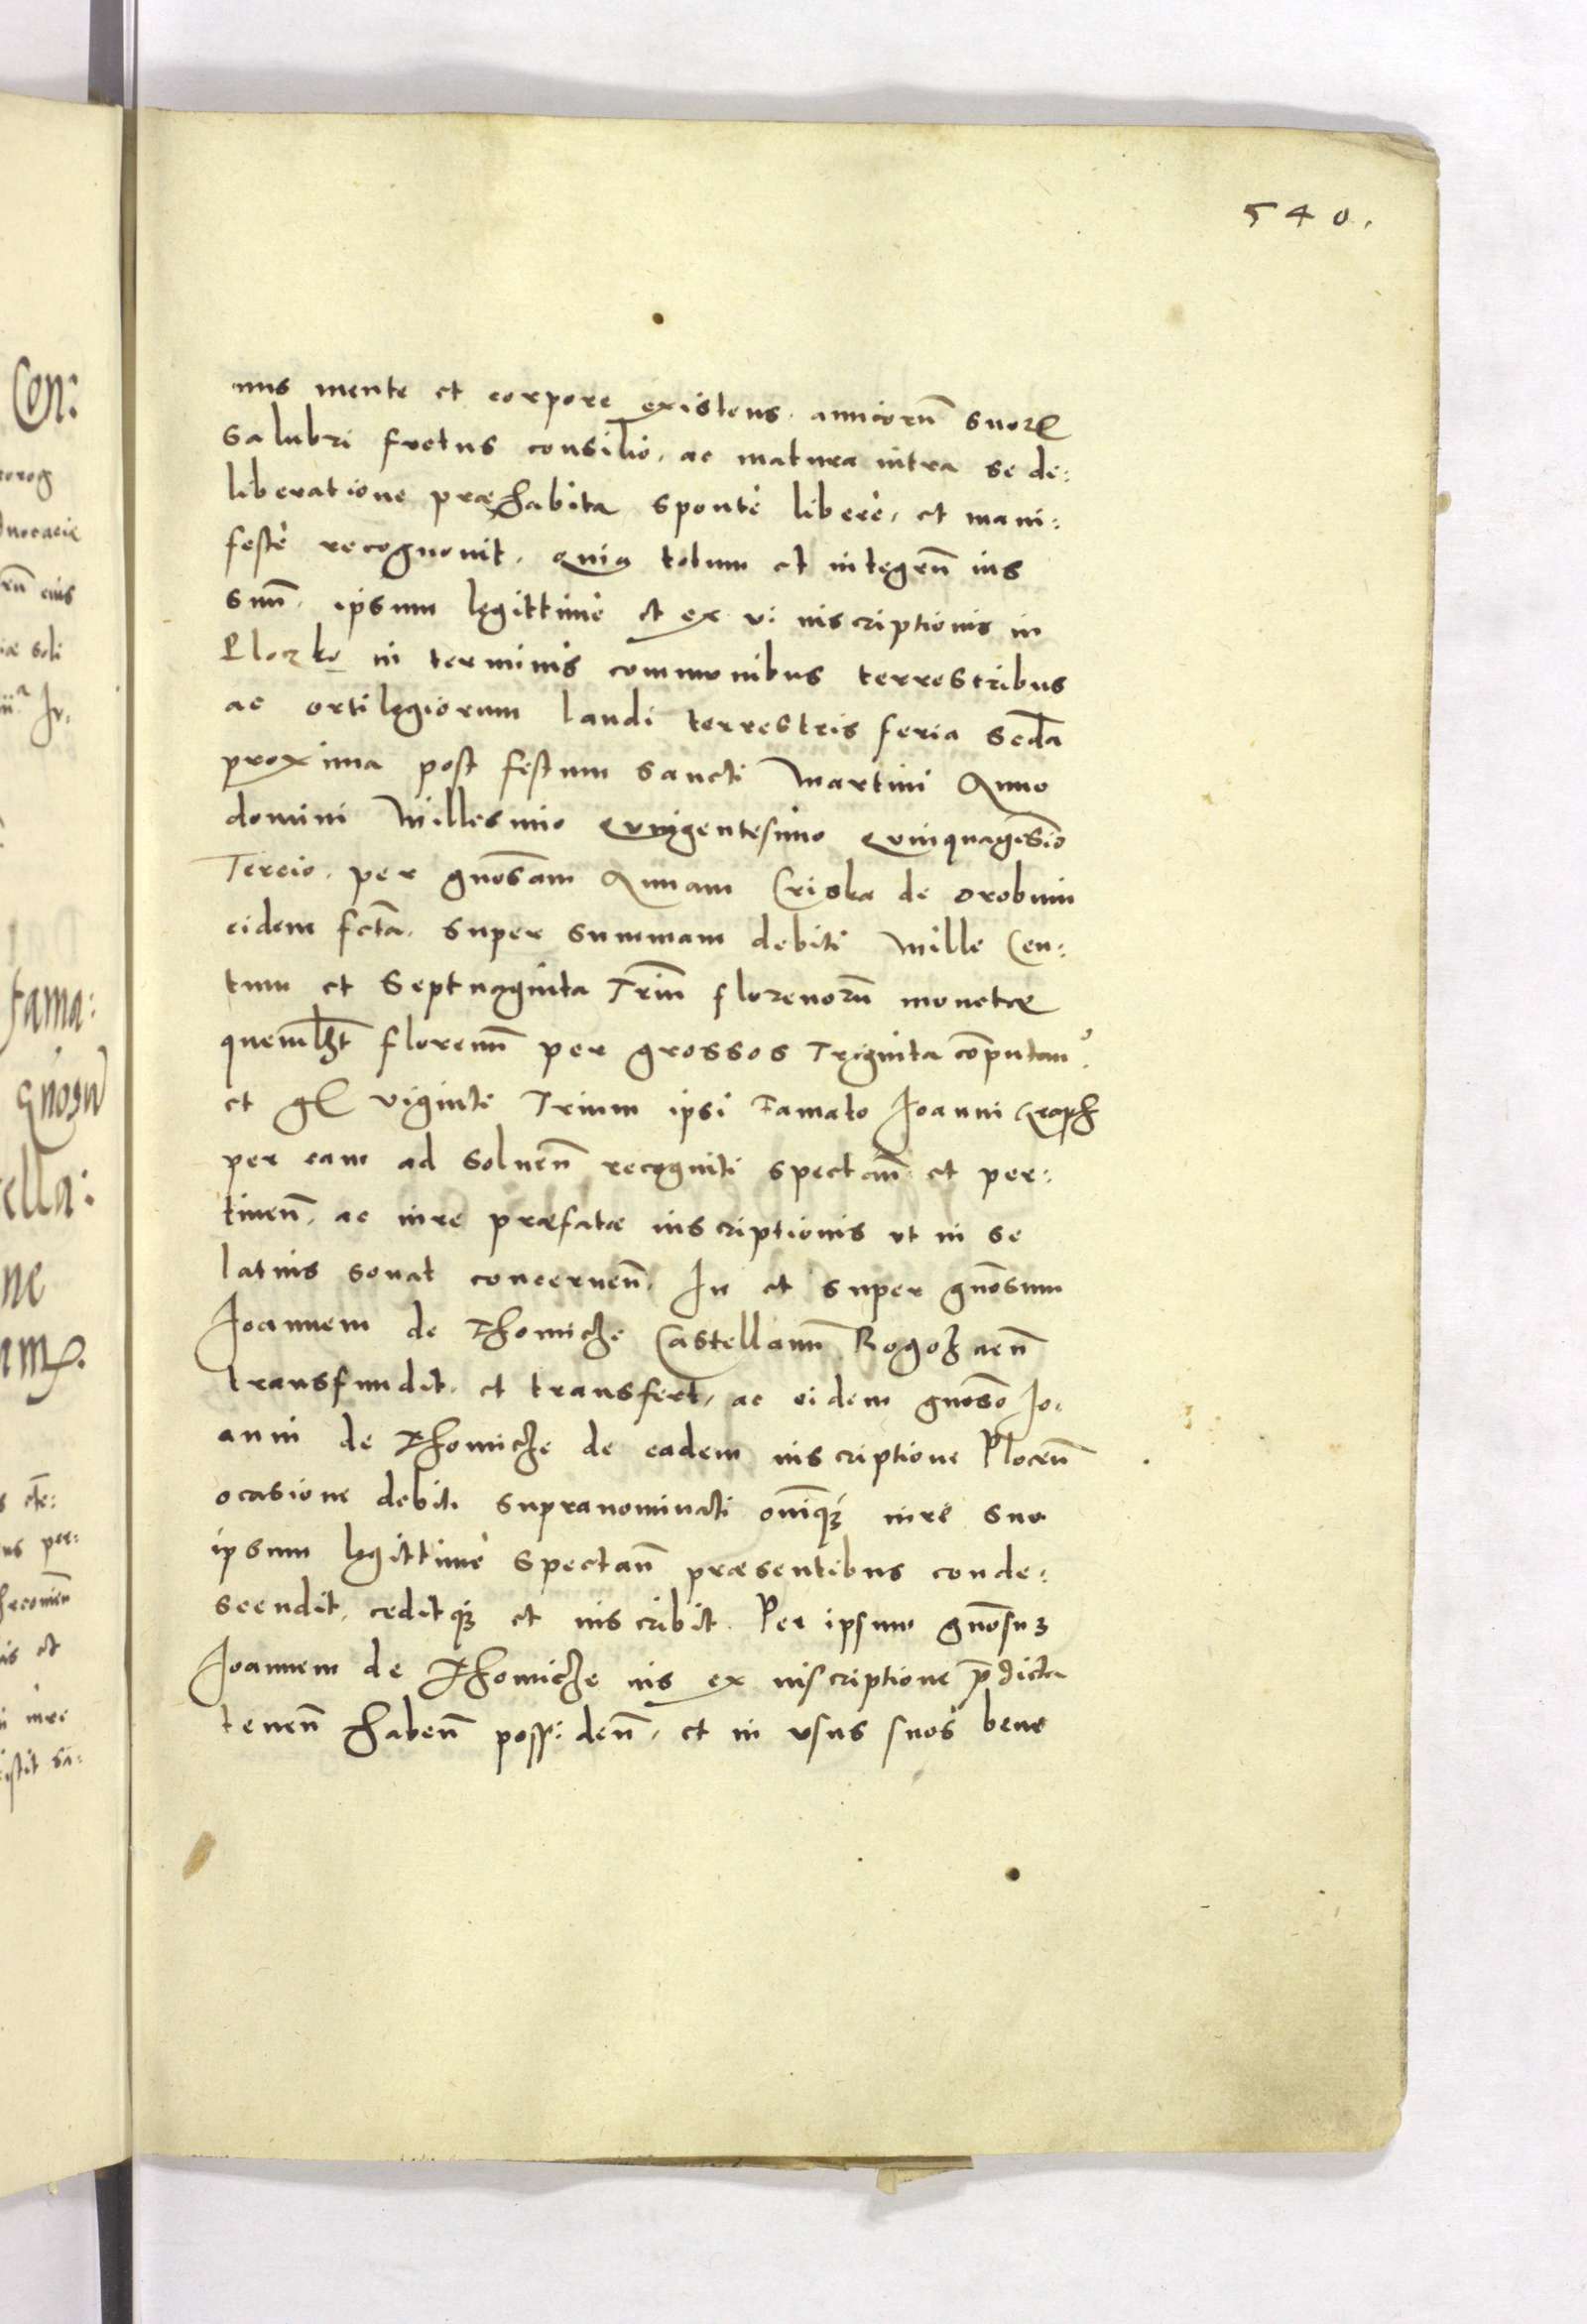 540.
nus mente et corpore existens. amicorũ suorꝝ
salubri fretus consilio, ac matura intra se de:
liberatione præhabita sponte libere, et mani:
feste recognovit. Quia totum et integrũ ius
suũ, ipsum legittime et ex vi inscriptionis in
Ploczko in terminis communibus terrestribus
ac ortilegiorum laudi terrestris feria secda
proxima post festum sancti Martini Anno
domini Millesimo Quingentesimo Quinquagesio
Tercio. per gnosam Annam Criska de Drobnin
eidem fcta. super summam debiti Mille Cen:
tum et Septuaginta Triũ florenorũ monetæ
quemlbt florenũ per grossos Triginta cõputan
et gl viginti Trium ipsi Famato Joanni Graph
per eam ad solvenñ recogniti spectanñ et per:
tinenñ. ac iure præfatæ inscriptionis ut in se
latius sonat concernenñ. In et super gnosum
Joannem de Thomicze Castellanũ Rogoznenñ
transfundit, et transfert, ac eidem gnoso Jo:
anni de Thomicze de eadem inscriptione Plocenñ
ocasione debiti supranominati oniqꝫ iure suo
ipsum legittime spectanñ præsentibus conde:
scendit, ceditqꝫ et inscribit. Per ipsum gnosuꝫ
Joannem de Thomicze ius ex inscriptione p̃dicta
tenenñ habenñ possidenñ, et in usus suos bene
Con:
fama:
gnosu
ella:
ne